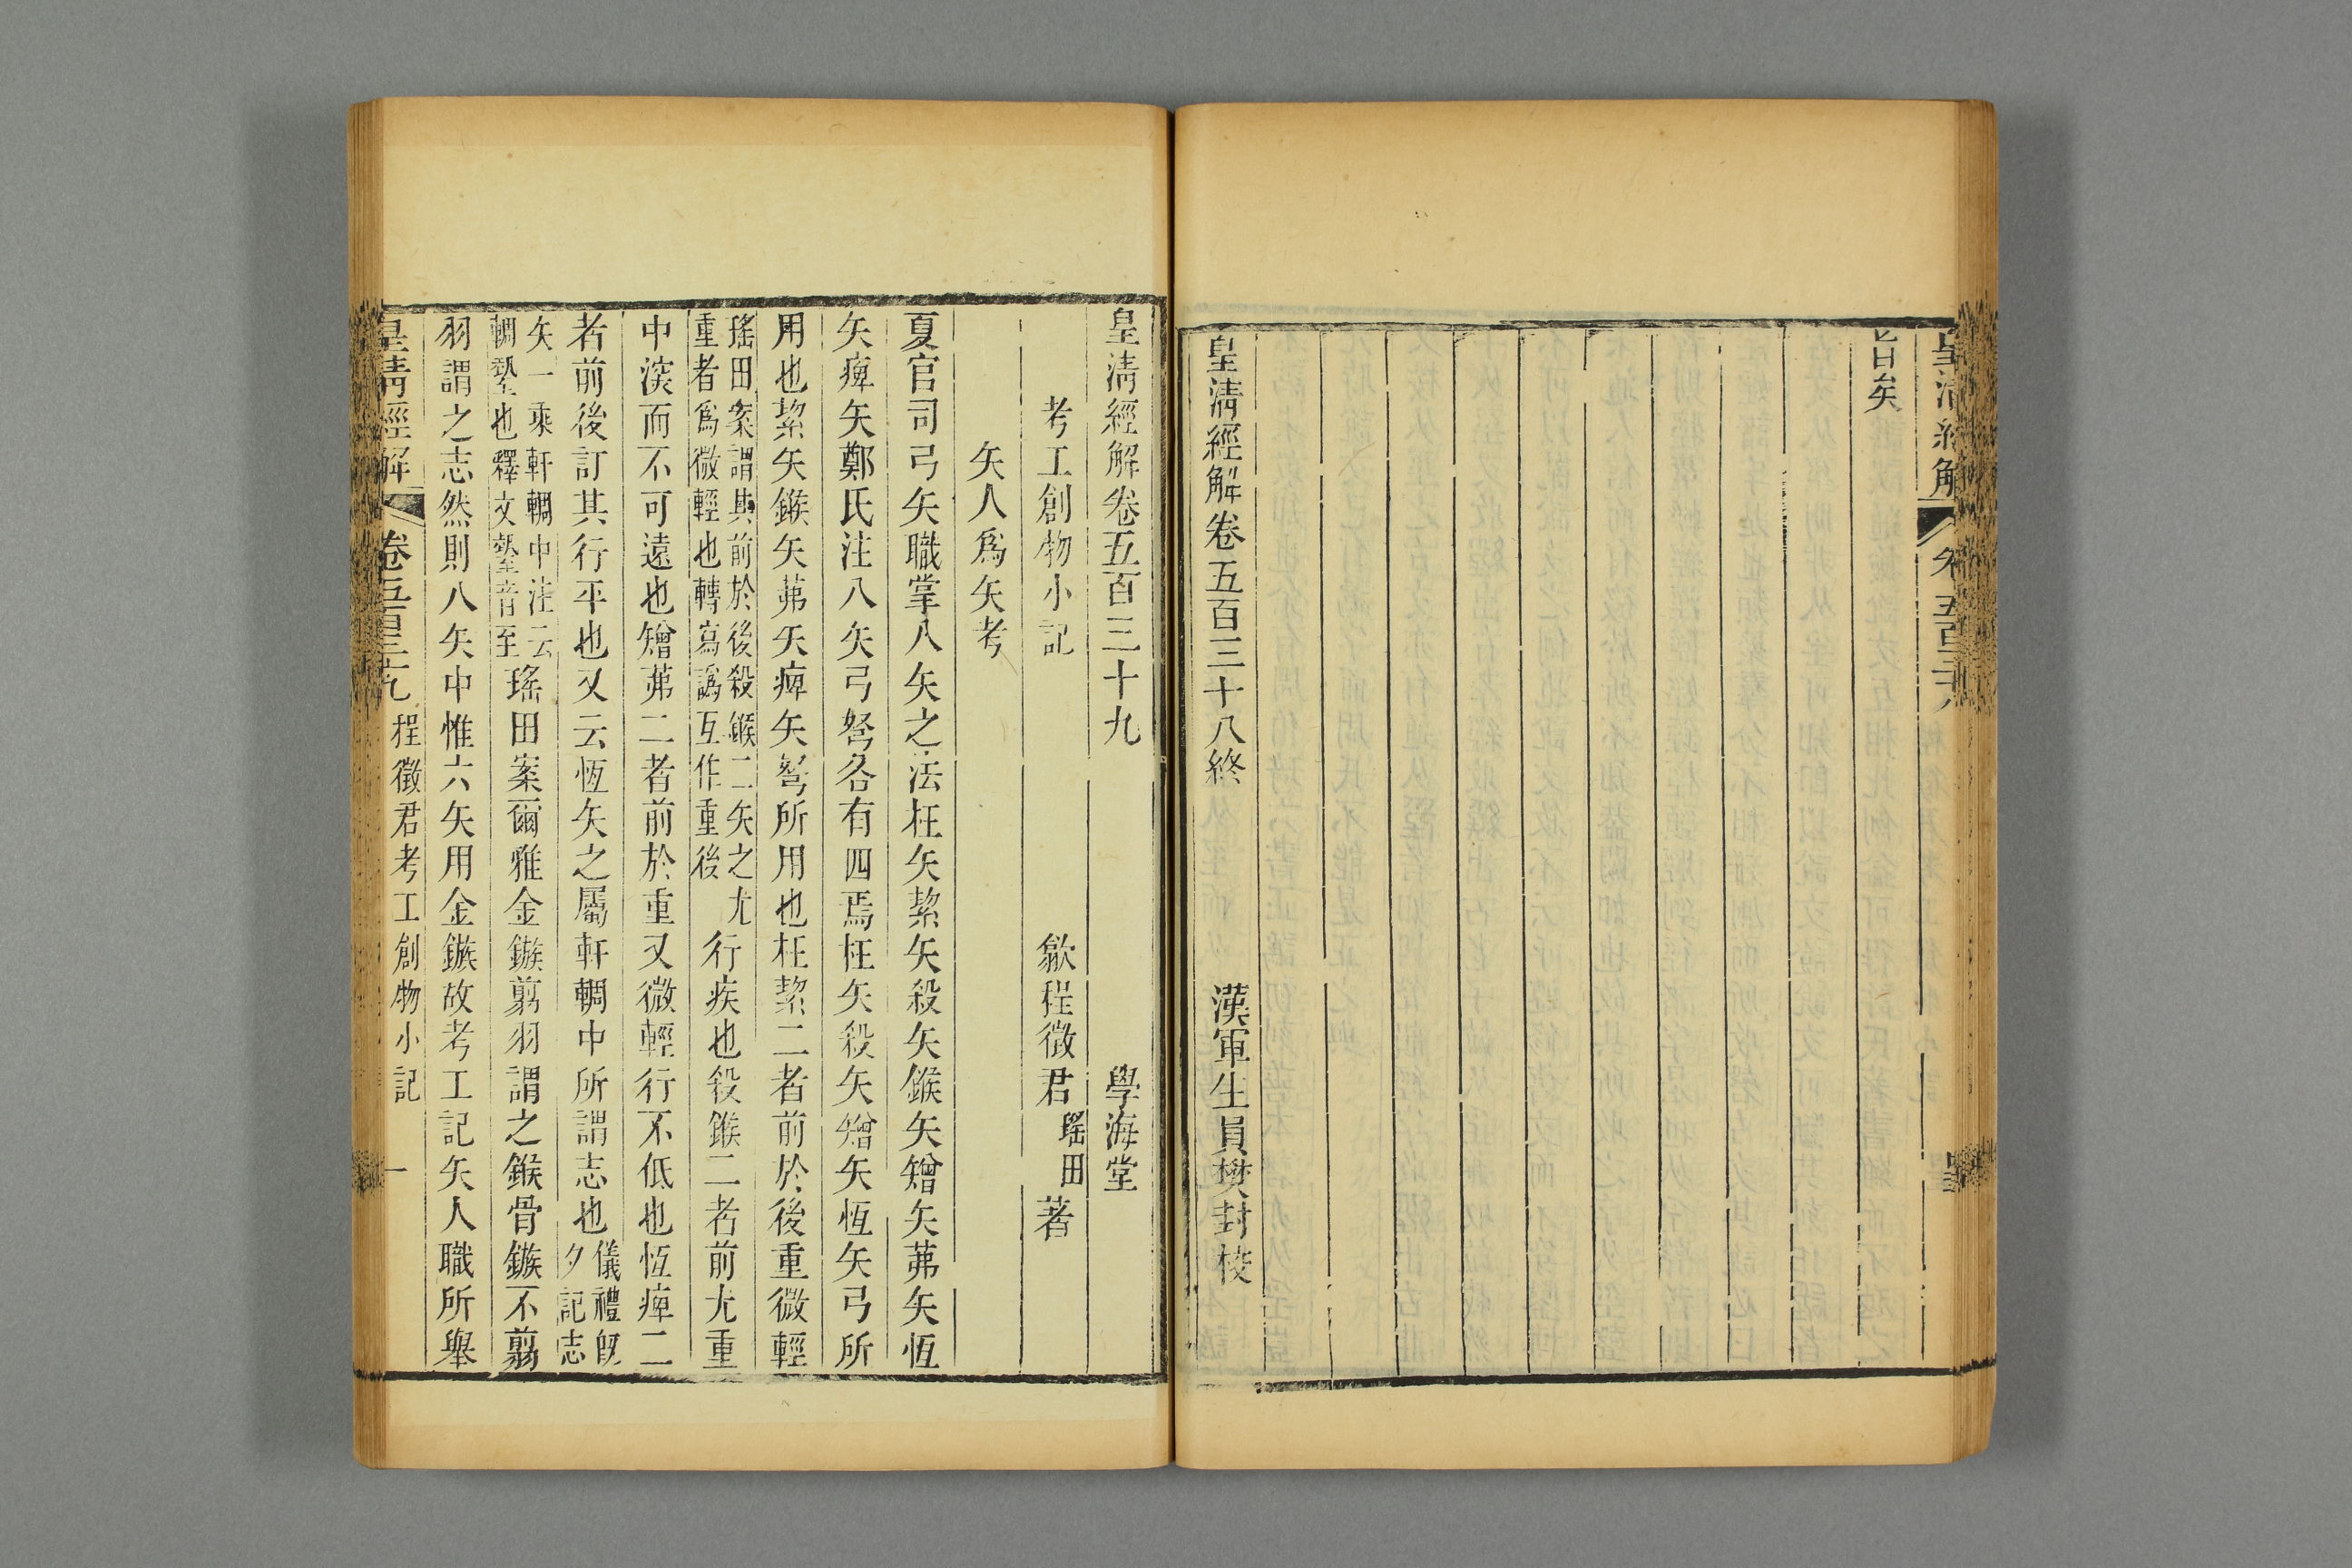 旨矣
皇清經解卷五百三十八終
漢軍生員樊封校
皇清經解卷五百三十九
學海堂
考工創物小記
歙程徵君瑤田著
矢人爲矢考
夏官司弓矢職掌八矢之法枉矢絜矢殺矢鍭矢矰矢茀矢恆
矢痺矢鄭氏注八矢弓弩各有四焉枉矢殺矢矰矢恆矢弓所
用也絜矢鍭矢茀矢痺矢弩所用也枉絜二者前於後重微輕
瑤田案謂其前於後殺鍭二矢之尤
重者爲微輕也轉寫譌互作重後
行疾也殺鍭二者前尤重
中深而不可遠也矰茀二者前於重又微輕行不低也恆痺二
者前後訂其行平也又云恆矢之屬軒輖中所謂志也
儀禮旣
夕記志
矢一乘軒輖中注云
輖墊也釋文墊音至
瑤田案爾雅金鏃翦羽謂之鍭骨鏃不翦
羽謂之志然則八矢中惟六矢用金鏃故考工記矢人職所舉
皇清經解
卷五百三十九
程徵君考工創物小記
一